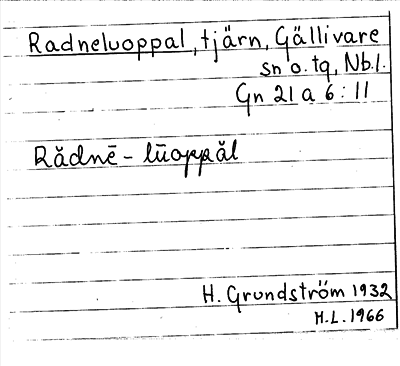 Radneluoppal, tjärn, Gällivare
sn o. tg, Nb.l.
Gn 21 a 6 : 11
Rǎdnē - lūoppǎl
H. Grundström 1932
H.L. 1966